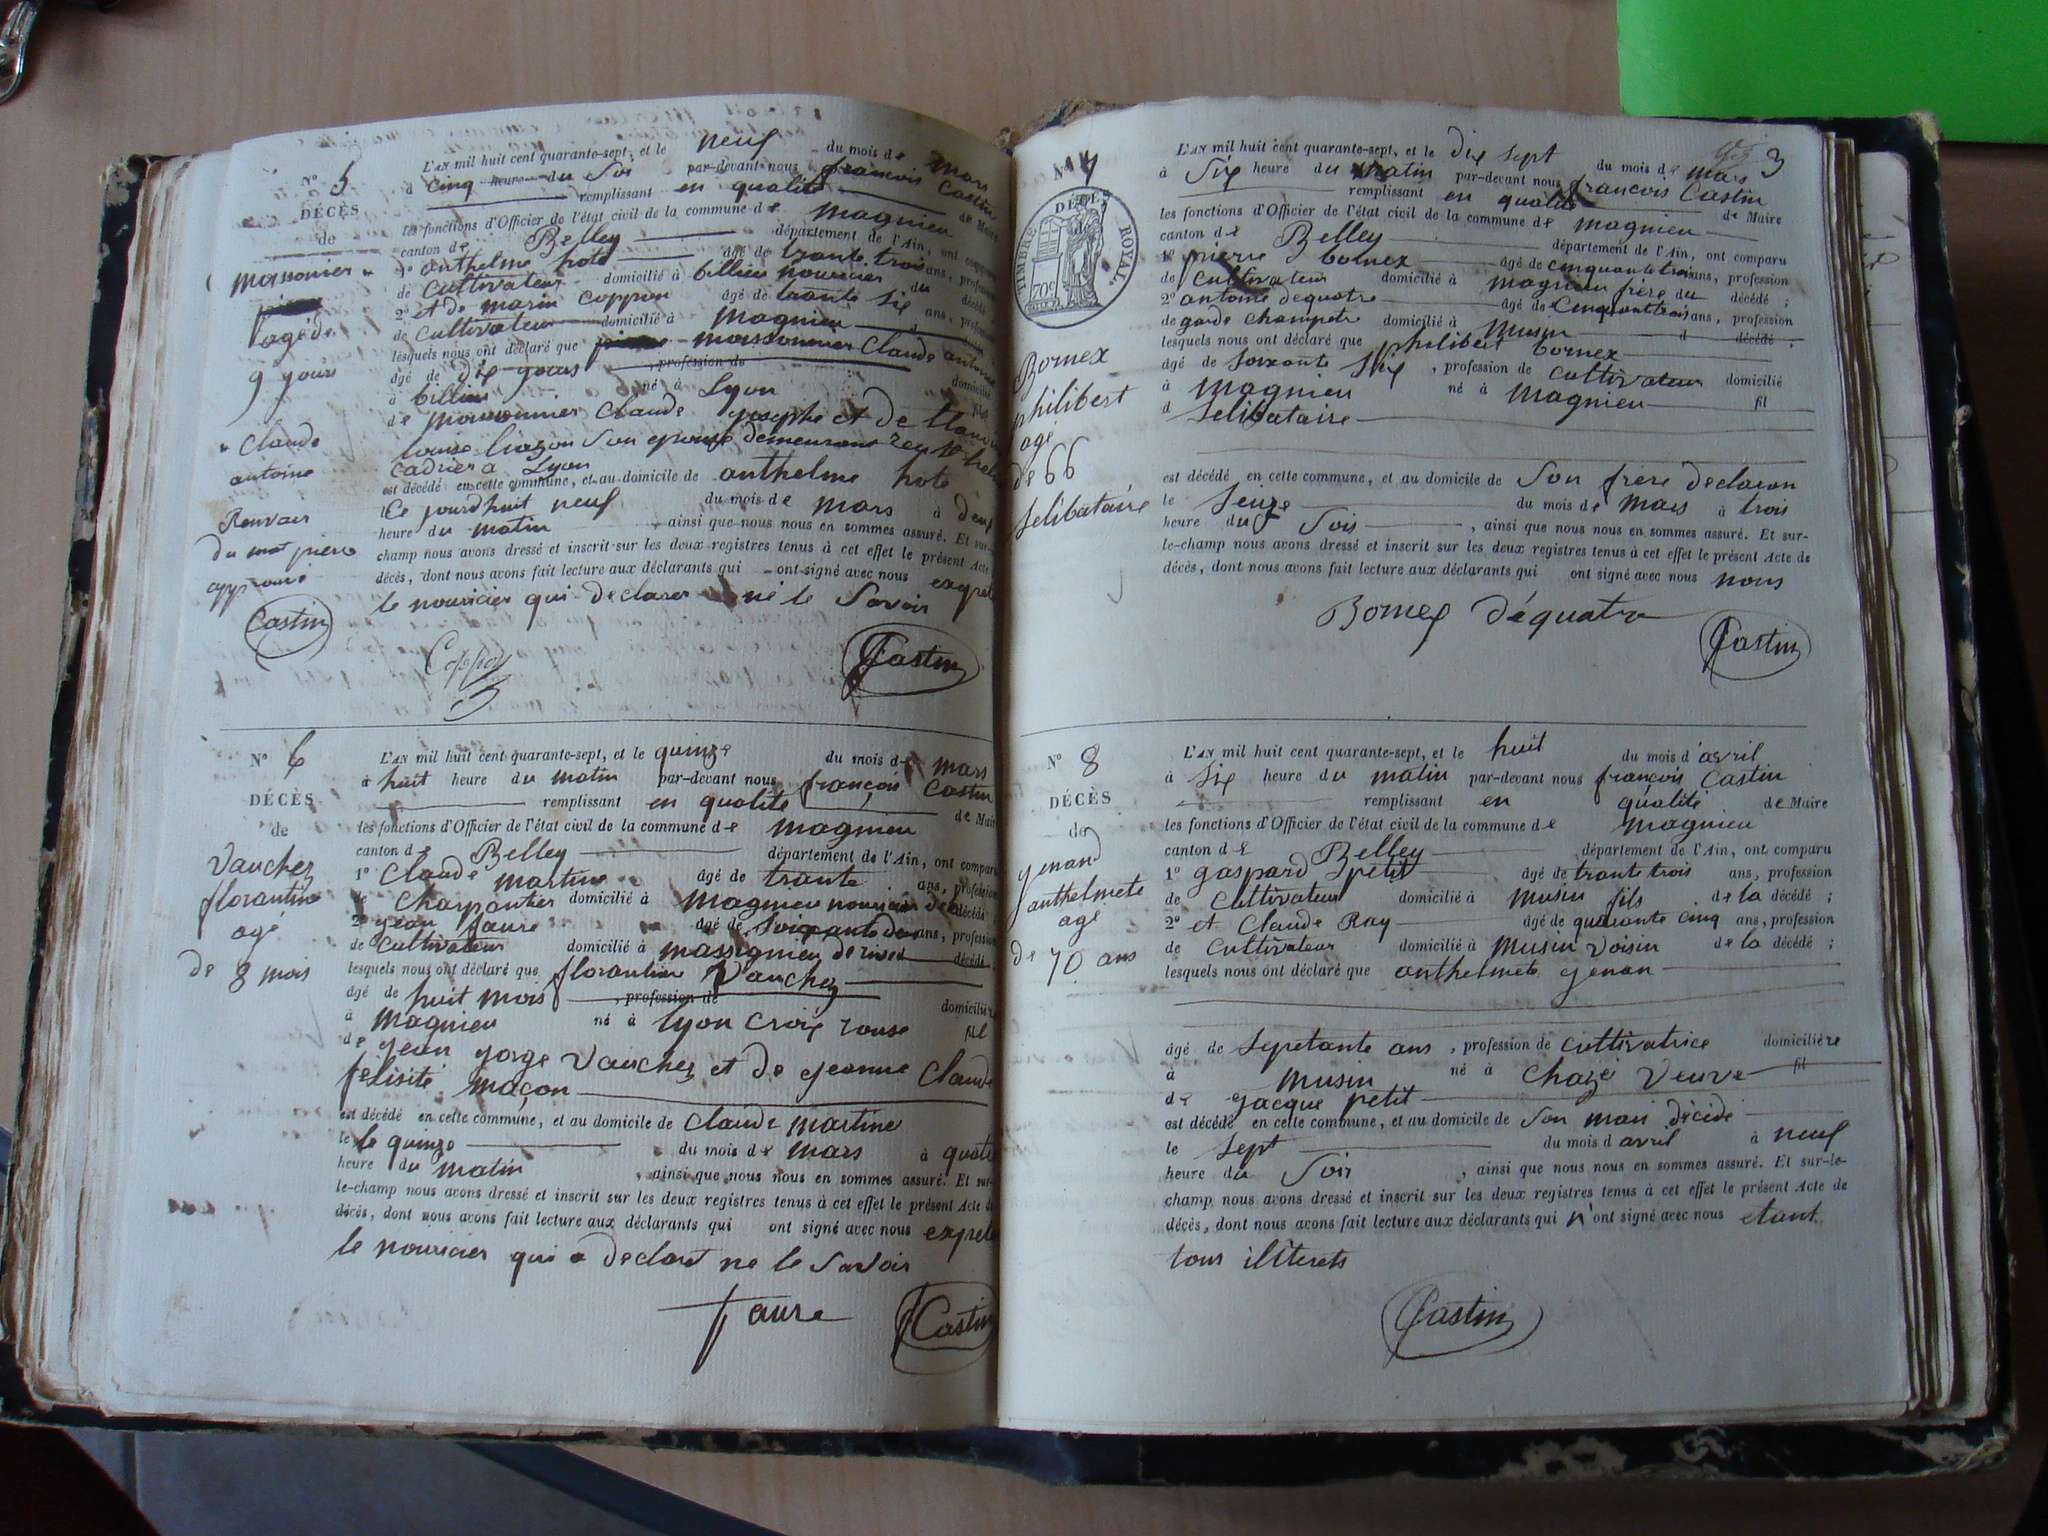 N° 5
DÉCÈS
de
moissonier
agé de
9 jours
Claude
antoine
Renvoi
du mot pierre
approuvé
Castin
L'AN mil huit cent quarante-sept, et le neuf du mois de mars
à cinq heure du soir par-devant nous françois Castin
remplissant en qualité de Maire
les fonctions d'Officier de l'état civil de la commune de magnieu
canton de Belley département de l'Ain, ont comparu
1° anthelme hote âgé de trante trois ans, profession
de cultivateur domicilié à billieu nouricier du décédé
2° et de marin coppon âgé de trante six ans, profession
de cultivateur domicilié à magnieu d
lesquels nous ont déclaré que moissonnier Claude antoine
âgé de dix jours , profession de domicilié
à billieu né à Lyon fil
de moissonnier Claude josephe et de
louise son epouse demeurant
à Lyon
est décédé en cette commune, et au domicile de anthelme hote
le Ce jourdhuit neuf du mois de mars à deux
heure du matin ainsi que nous nous en sommes assuré. Et sur-
champ nous avons dressé et inscrit sur les deux registres tenus à cet effet le présent Acte
décès, dont nous avons fait lecture aux déclarants qui ont signé avec nous exepte
le nouricier qui declarer ne le Savoir
Coppon
Castin
N° 6
DÉCÈS
de
Vauchez
florantine
agé
de 8 mois
L'AN mil huit cent quarante-sept, et le quinze du mois de mars
à huit heure du matin par-devant nous françois Castin
remplissant en qualité de Maire
les fonctions d'Officier de l'état civil de la commune de magnieu
canton de Belley département de l'Ain, ont comparu
1° Claude martine âgé de trante ans, profession
de charpantier domicilié à magnieu nouricier de la décédé ;
2° jean faure âgé de Soixante deux ans, profession
de cultivateur domicilié à massignieu de rives décédé ;
lesquels nous ont déclaré que florantine Vauchez
âgé de huit mois , profession de domicilié
à magnieu né à lyon croix rouse fil
de jean jorge Vauchez et de jeanne Claude
felisité maçon
est décédé en cette commune, et au domicile de Claude martine
le le quinze du mois de mars à quatre
heure du matin , ainsi que nous nous en sommes assuré. Et sur-
le-champ nous avons dressé et inscrit sur les deux registres tenus à cet effet le présent Acte de
décès, dont nous avons fait lecture aux déclarants qui ont signé avec nous exepte
le nouricier qui a declaré ne le Savoir
faure
Castin
3
N° 7
DÉCÈS
TIMBRE ROYAL
70c
Bornex
philibert
agé
de 66
selibataire
L'AN mil huit cent quarante-sept, et le dix sept du mois de mars
à Six heure du matin par-devant nous françois Castin
remplissant en qualité de Maire
les fonctions d'Officier de l'état civil de la commune de magnieu
canton de Belley département de l'Ain, ont comparu
1° pierre bornex âgé de cinquante trois ans, profession
de cultivateur domicilié à magnieu frère du décédé ;
2° antoine dequatre âgé de Cinquante trois ans, profession
de garde champetre domicilié à Musin d décédé ;
lesquels nous ont déclaré que philibert bornex
âgé de soixante Six , profession de cultivateur domicilié
à magnieu né à magnieu fil
d Selibataire
est décédé en cette commune, et au domicile de Son frère declaran
le Seuze du mois de mars à trois
heure du Soir , ainsi que nous nous en sommes assuré. Et sur-
le-champ nous avons dressé et inscrit sur les deux registres tenus à cet effet le présent Acte de
décès, dont nous avons fait lecture aux déclarants qui ont signé avec nous nous
Bornex déquatre
Castin
N° 8
DÉCÈS
de
genand
anthelmete
agé
de 70 ans
L'AN mil huit cent quarante-sept, et le huit du mois d'avril
à Six heure du matin par-devant nous françois Castin
remplissant en qualité de Maire
les fonctions d'Officier de l'état civil de la commune de magnieu
canton de Belley département de l'Ain, ont comparu
1° gaspard petit âgé de trante trois ans, profession
de cultivateur domicilié à musin fils de la décédé ;
2° et Claude Ray âgé de quarante cinq ans, profession
de cultivateur domicilié à musin voisin de la décédé ;
lesquels nous ont déclaré que anthelmete genan
âgé de Septante ans , profession de cultivatrice domicilière
à musin né à Chazé veuve fil
de jacque petit
est décédé en cette commune, et au domicile de Son mari décédé
le Sept du mois d avril à neuf
heure du Soir , ainsi que nous nous en sommes assuré. Et sur-le-
champ nous avons dressé et inscrit sur les deux registres tenus à cet effet le présent Acte de
décès, dont nous avons fait lecture aux déclarants qui n'ont signé avec nous etant
tous iliterets
Castin